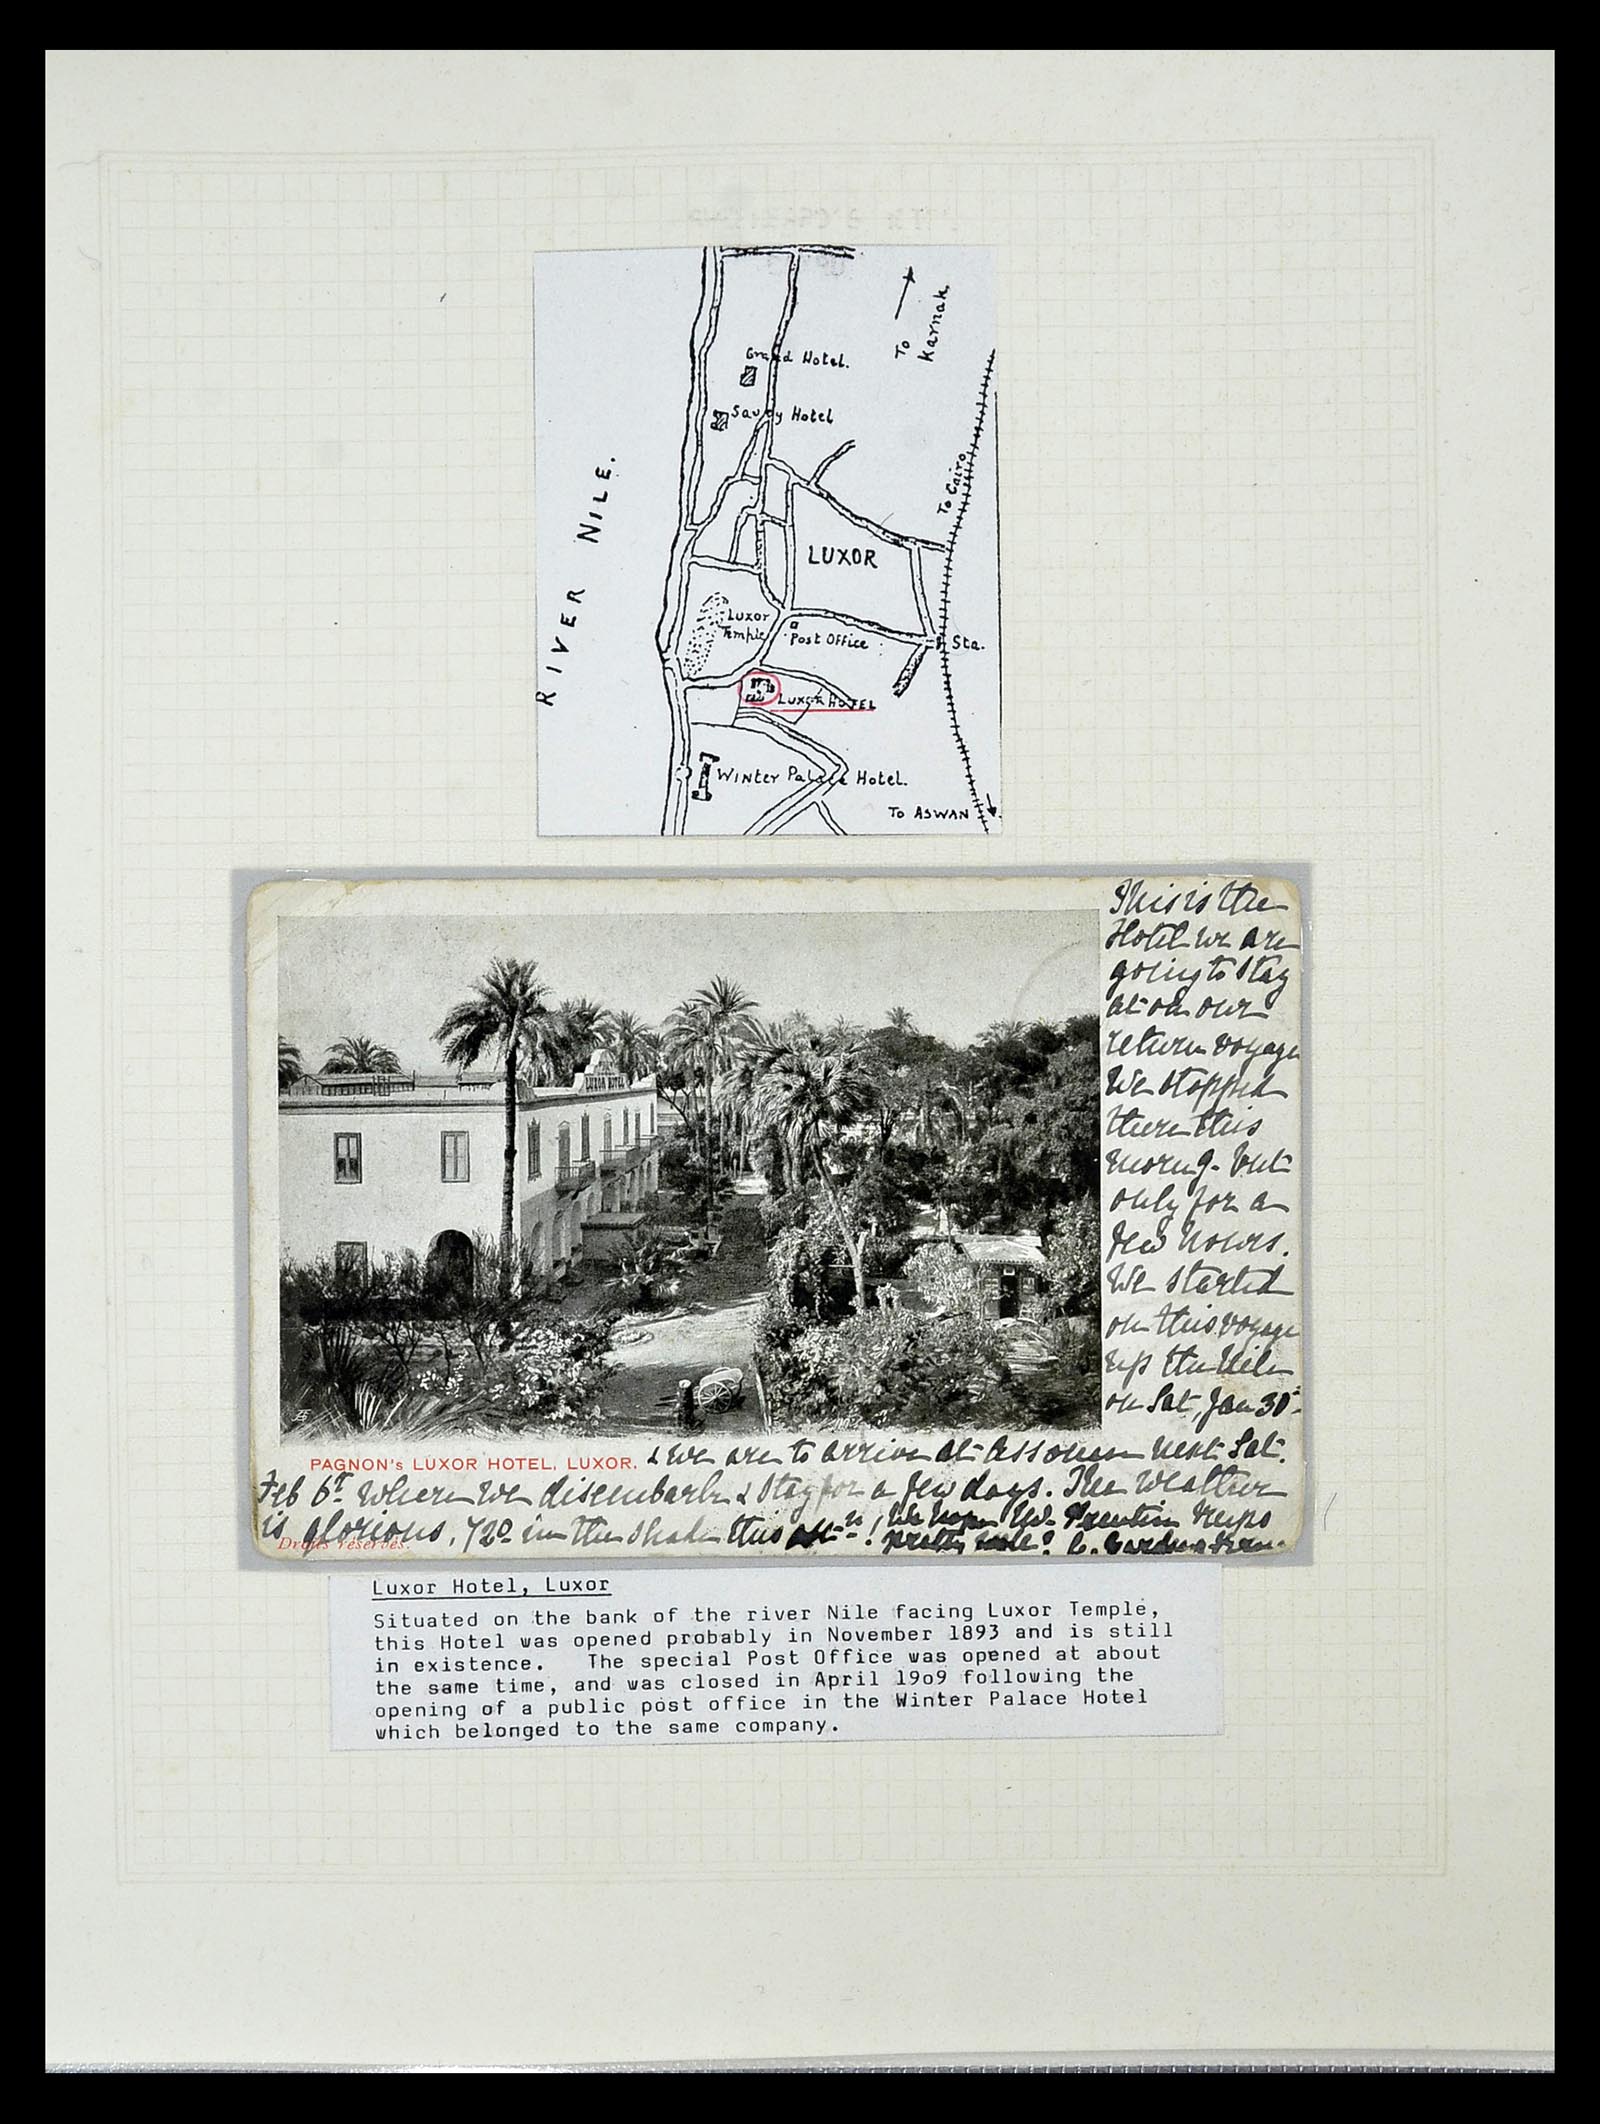 Grand Hotel.
Savoy Hotel
To Karnak
RIVER NILE.
To Cairo
LUXOR
Luxor
Temple
Post Office
Sta.
LUXOR HOTEL
WINTER PALACE Hotel.
TO ASWAN
LUXOR HOTEL
This is the
Hotel we are
going to stay
at on our
return voyage
We stopped
there this
morng. but
only for a
few hours.
We started
on this voyage
up the Nile
on Sat, Jan 30th
PAGNON's LUXOR HOTEL, LUXOR.
& we are to arrive at Assouan next Sat.
Feb 6th where we disembark & stay for a few days. The weather
is glorious, 72° in the shade this aftn! We hope
keeps
Droits réservés.
pretty well?
Luxor Hotel, Luxor
Situated on the bank of the river Nile facing Luxor Temple,
this Hotel was opened probably in November 1893 and is still
in existence. The special Post Office was opened at about
the same time, and was closed in April 19o9 following the
opening of a public post office in the Winter Palace Hotel
which belonged to the same company.